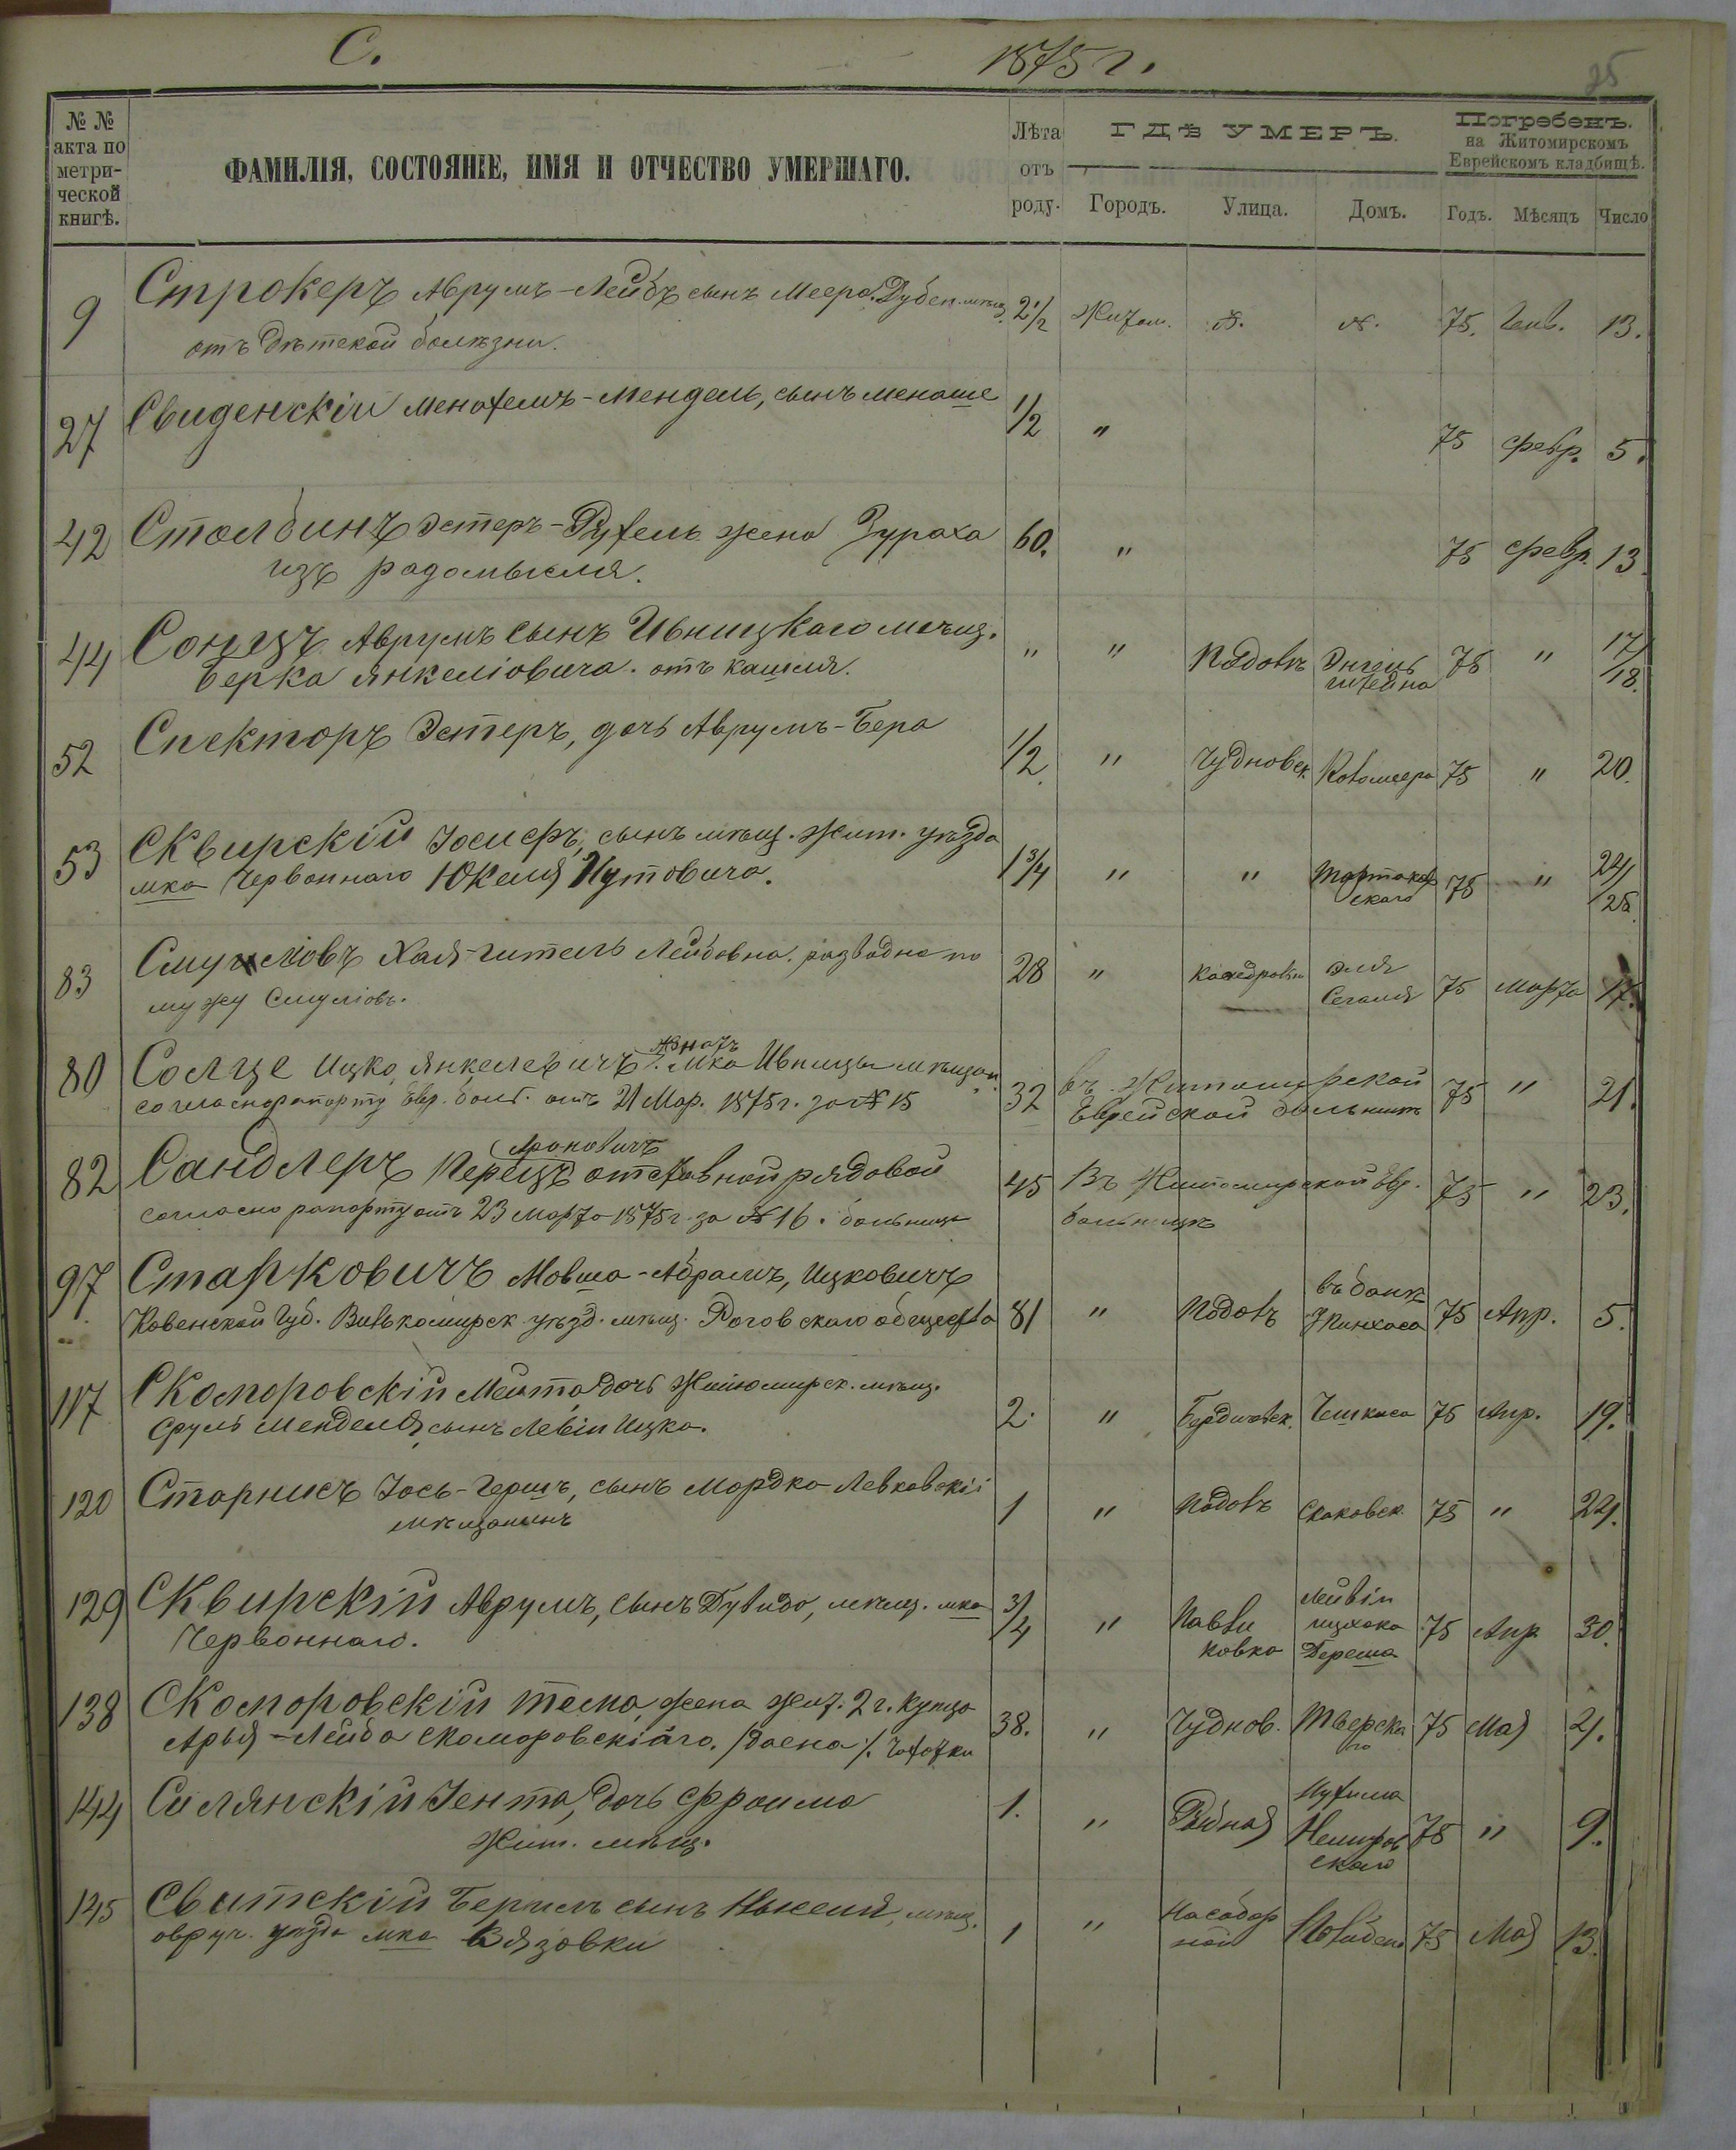 С.
1875 г.
25
№ №
акта по
метри-
ческой
книгѣ.
ФАМИЛІЯ, СОСТОЯНІЕ, ИМЯ И ОТЧЕСТВО УМЕРШАГО.
Лѣта
отъ
роду.
ГДѢ УМЕРЪ.
Городъ.
Улица.
Домъ.
Погребенъ.
на Житомирскомъ
Еврейскомъ кладбищѣ.
Годъ.
Мѣсяцъ
Число
9 Строкеръ Аврумъ-Лейбъ сынъ Меера Дубен. мѣщ. 2½ Житом. 75. Янв. 13.
отъ дѣтской болѣзни.
27 Свиденскій Менахемъ-Мендель, сынъ Менаше ½ " 75 Февр. 5.
42 Столбинъ Эстеръ-Рухель жена Зураха 60. " 75 Февр. 13
изъ Радомысля.
44 Аврумъ сынъ Ивницкаго мѣщ. " " 75 " 17/18.
Берка Янкеліовича. отъ кашля.
52 Спекторъ Эстеръ, дочь Аврумъ-Бера ½ " Чудновск. 75 " 20.
53 Сквирскій Іосифъ, сынъ мѣщ. Жит. уѣзда 1¾ " " 75 " 24/25
мка Червоннаго Юкеля Нутовича.
83 Хая-Гитель Лейбовна. разводна по 28 " Эля 75 Марта 17.
мужу Смуліовъ. Сегаля
80 Ицко Янкелевичъ мка Ивницы мѣщан. 32 въ Житомирской 75 " 21.
согласно рапорту Евр. больн. отъ 21 Мар. 1875 г. за № 15 Еврейской больницѣ
Ароновичъ
82 Сандлеръ Перецъ отставной рядовой 45 Въ Житомирской Евр. 75 " 23.
согласно рапорту отъ 23 Марта 1875 г. за № 16. больницы больницѣ
97 Старковичъ Мовша-Абрамъ, Ицковичъ 81 " Подолъ въ банѣ 75 Апр. 5.
Ковенской Губ. Вилькомирск уѣзд. мѣщ. Роговскаго общества Пинхаса
117 Скоморовскій Мейта дочь Житомирск. мѣщ. 2. " Бердичевск. 75 Апр. 19.
Сруль Менделя, сынъ Левіи Ицка.
120 Іось-Гершъ, сынъ Мордко Левковскій 1 " Подолъ 75 " 24.
мѣщанинъ
129 Сквирскій Аврумъ, сынъ Дувида, мѣщ. мка ¾ " Павли Лейвіи 75 Апр 30.
Червоннаго. ковка Ицхока
138 Скоморовскій жена Жит. 2 г. купца 38. " Чуднов. Тверска 75 Мая 2.
Арья-Лейба Скоморовскійго. Чахотки го
144 Силянскій Іента, дочь Фроима 1. " Рыбная Нухима 75 " 9.
Жит. мѣщ. Немиров
скаго
145 Свитскій Берилъ сынъ мѣщ. 1 " 75 Мая 13.
овруч. уѣзда мка Вязовки